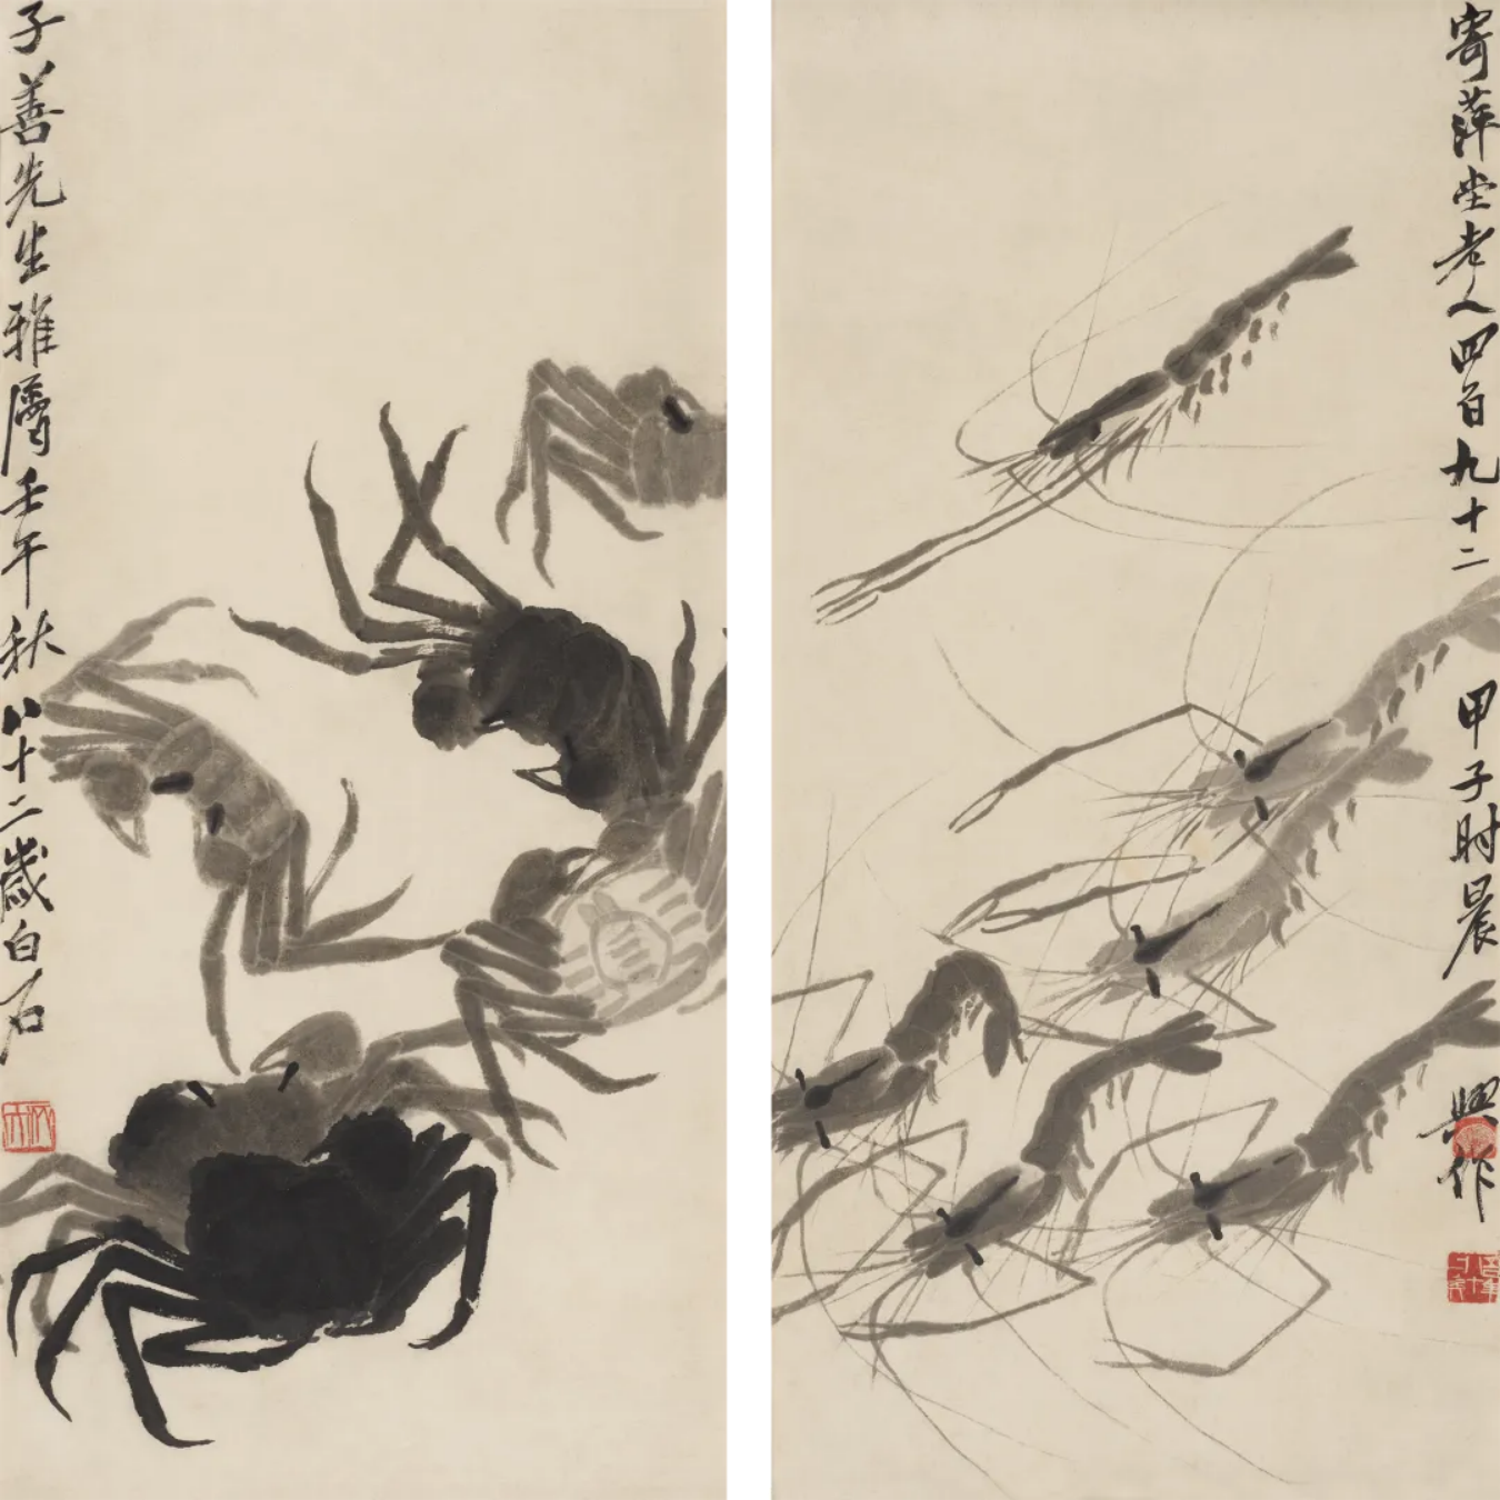 子善先生雅屬壬午秋八十二歲白石
寄萍堂老人四百九十二甲子时晨興作